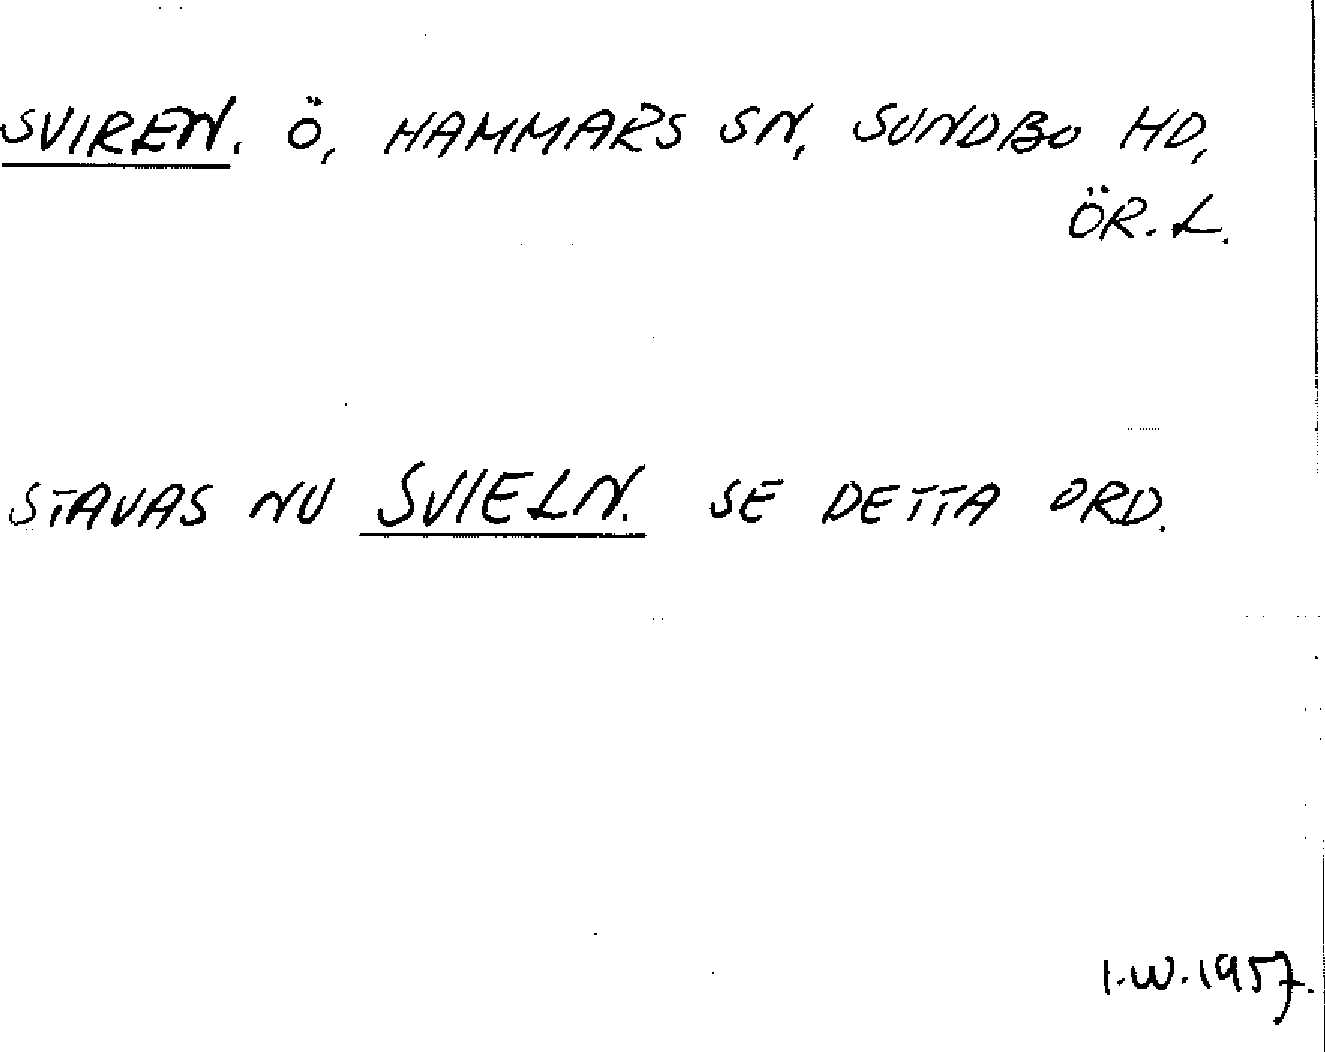 SVIREN. Ö, HAMMARS SN, SUNDBO HD,
ÖR. L.
STAVAS NU SVIELN. SE DETTA ORD.
I.W. 1957.